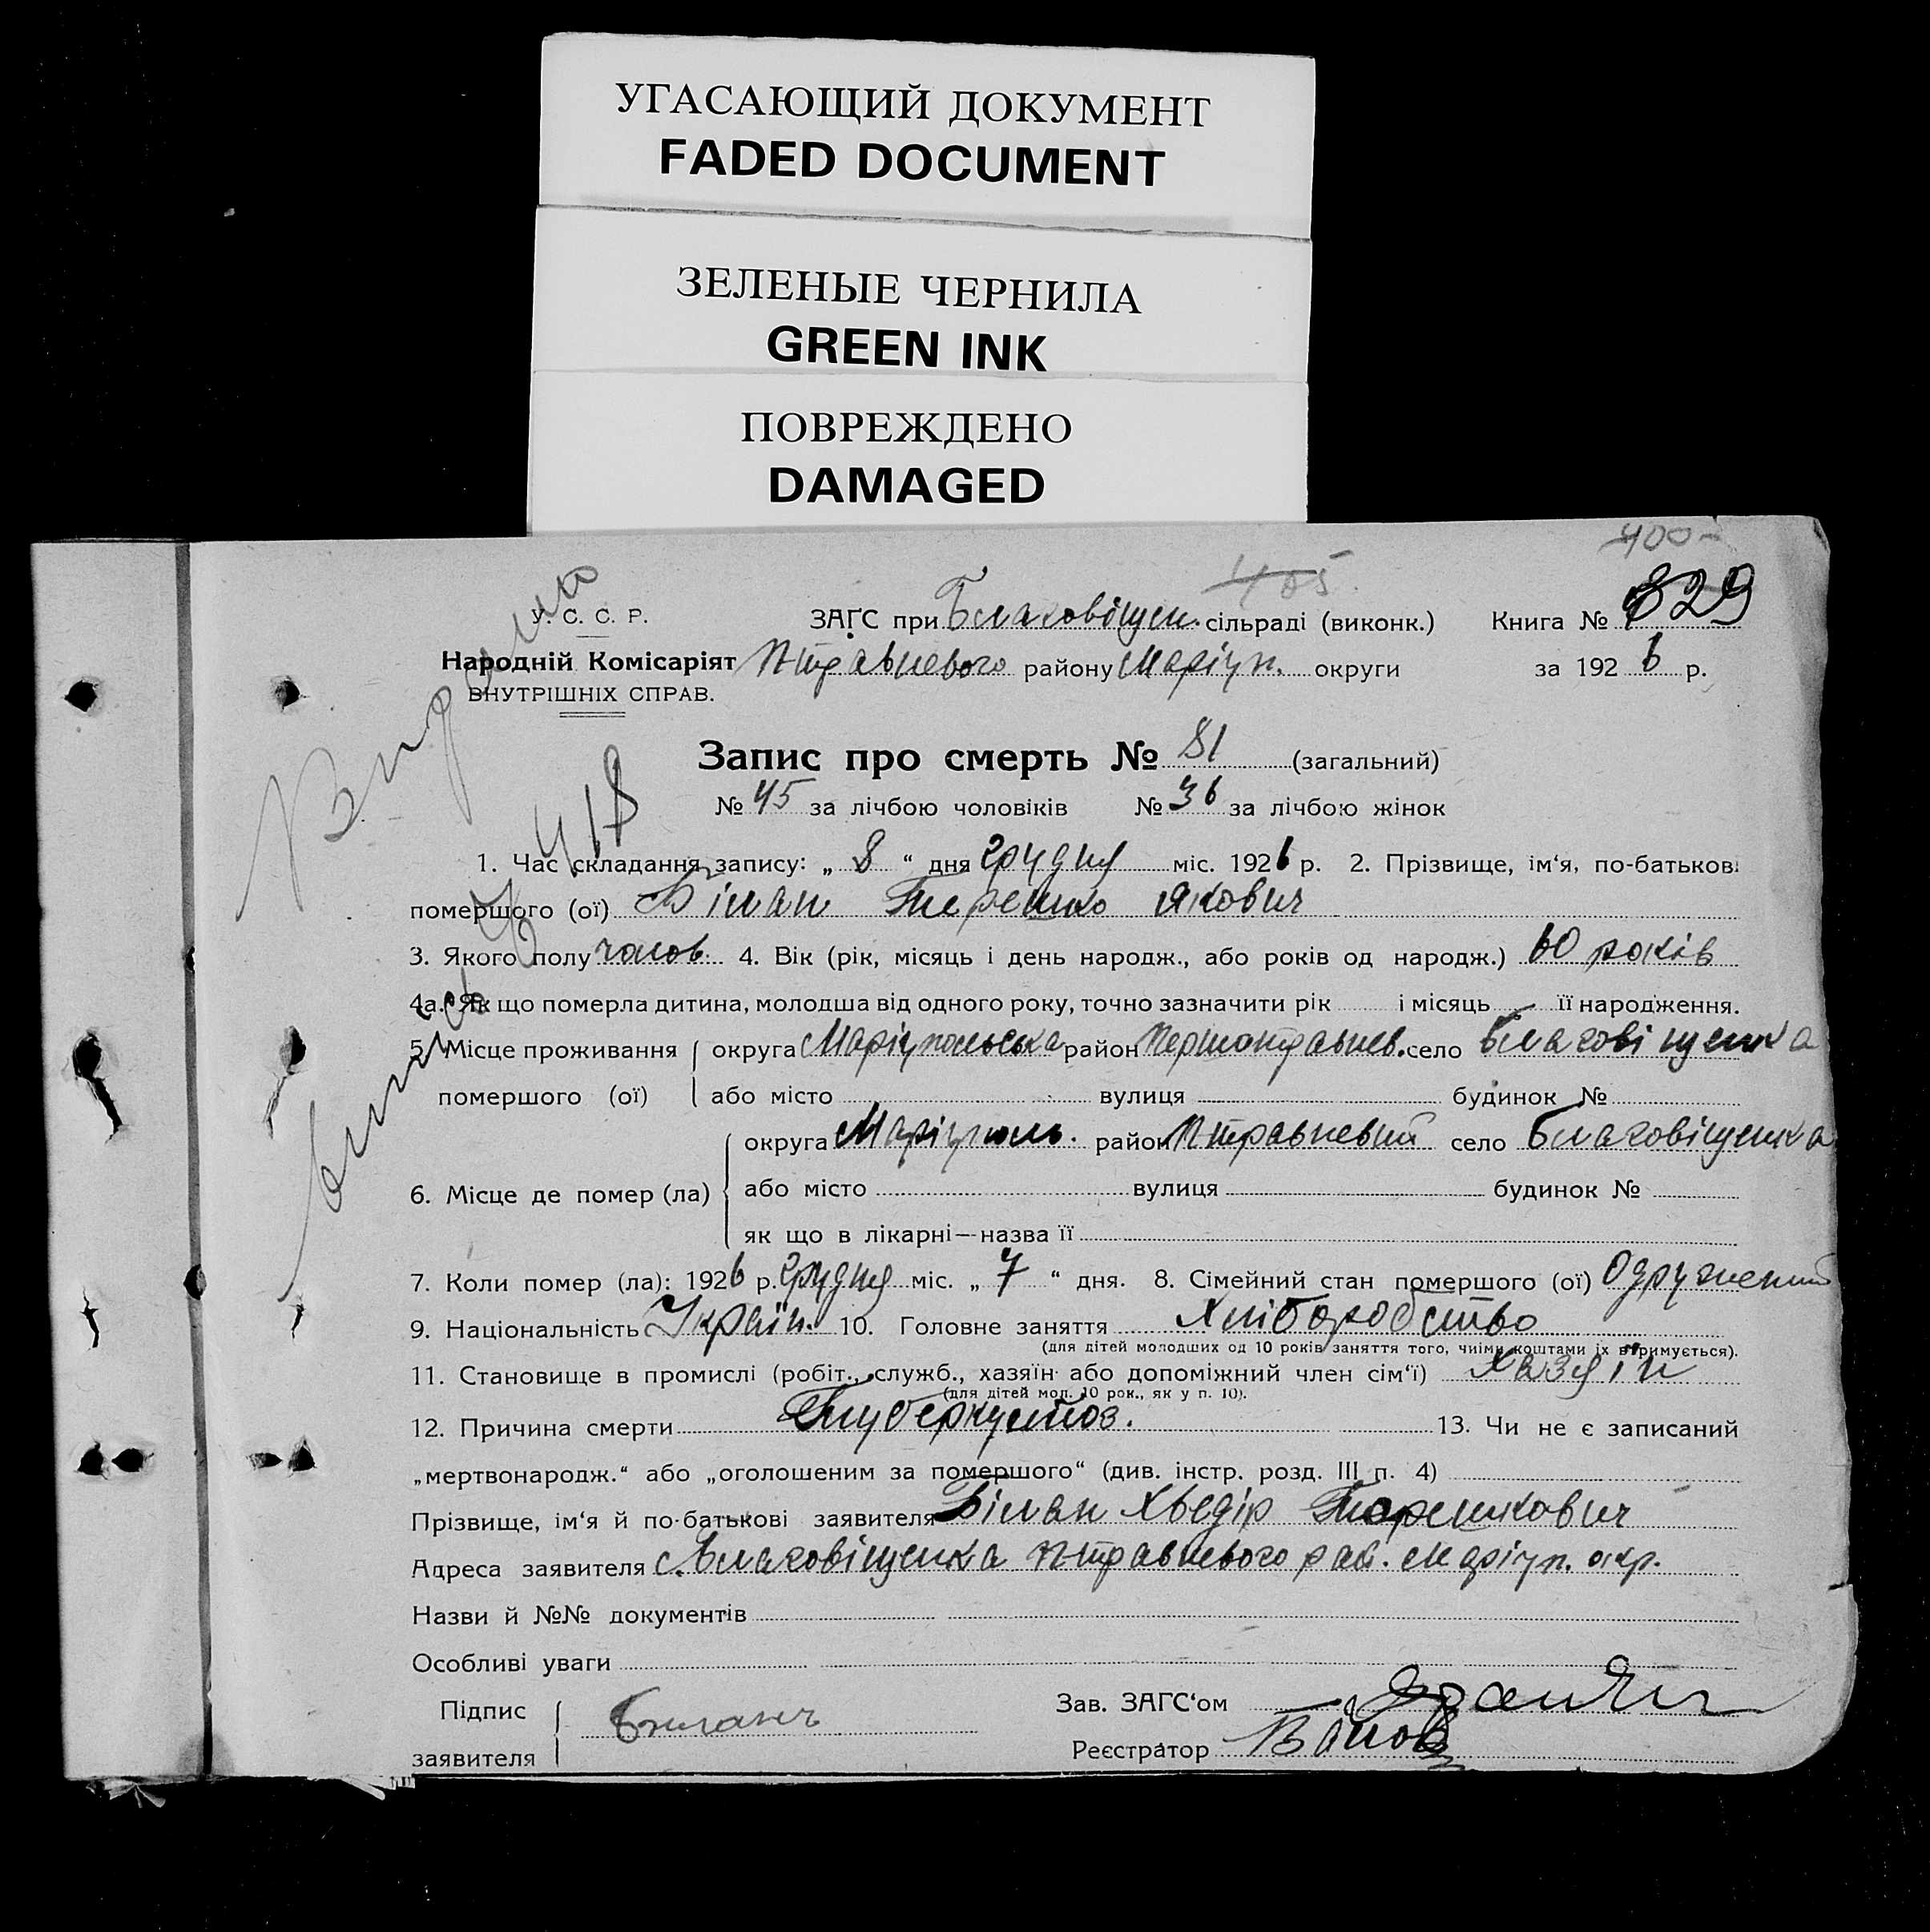 УГАСАЮЩИЙ ДОКУМЕНТ
FADED DOCUMENT
ЗЕЛЕНЫЕ ЧЕРНИЛА
GREEN INK
ПОВРЕЖДЕНО
DAMAGED
400
405
У. С. С. Р. ЗАГС при Благовіщен. сільраді (виконк.) Книга № 829
Народній Комісаріят П-травневого району Маріуп. округи за 1926 р.
ВНУТРІШНІХ СПРАВ.
Запис про смерть № 81 (загальний)
№ 45 за лічбою чоловіків № 36 за лічбою жінок
1. Час складання запису: „ 8 “ дня грудня міс. 1926 р. 2. Прізвище, ім‘я, по-батькові
померщого (ої) Білан Терешко Якович
3. Якого полу чолов. 4. Вік (рік, місяць і день народж., або років од народж.) 60 років
4а. Як що померла дитина, молодша від одного року, точно зазначити рік і місяць її народження.
5. Місце проживання округа Маріупольська район Першотравнев. село Благовіщенка
помершого (ої) або місто вулиця будинок №
округа Маріуполь. район П-травневий село Благовіщенка
6. Місце де помер (ла) або місто вулиця будинок №
як що в лікарні—назва її
7. Коли помер (ла): 1926 р. грудня міс. „ 7 “ дня. 8. Сімейний стан помершого (ої) Одружений
9. Національність Україн. 10. Головне заняття Хліборобство
(для дітей молодших од 10 років заняття того, чиїми коштами їх втримується).
11. Становище в промислі (робіт., служб., хазяїн або допоміжний член сім‘ї) Хазяїн
(для дітей мол. 10 рок., як у п. 10).
12. Причина смерти Туберкульоз. 13. Чи не є записаний
„мертвонародж.“ або „оголошеним за помершого“ (див. інстр. розд. III п. 4)
Прізвище, ім‘я й по-батькові заявителя Білан Хведір Терешкович
Адреса заявителя с. Благовіщенка П-травневого рай. Маріуп. окр.
Назви й №№ документів
Особливі уваги
Підпис Зав. ЗАГС‘ом
заявителя Биланъ Реєстратор